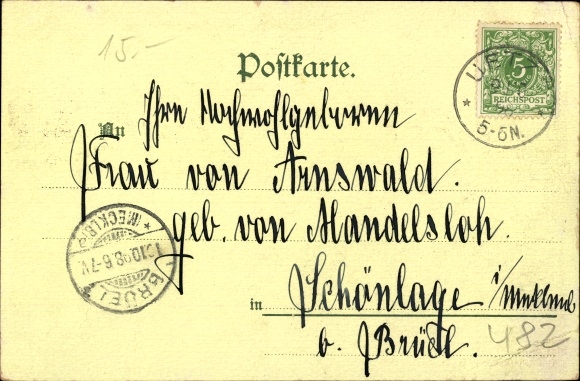 15.-
Postkarte.
5
REICHSPOST
5-6N.
An Ihre Hochwohlgeboren
Frau von Arnswald.
geb. von Mandelsloh.
* (MECKLB.) *
10 98. 6-7N.
BRÜEL
in Schönlage i/Meklenb
b. Brüel.
482